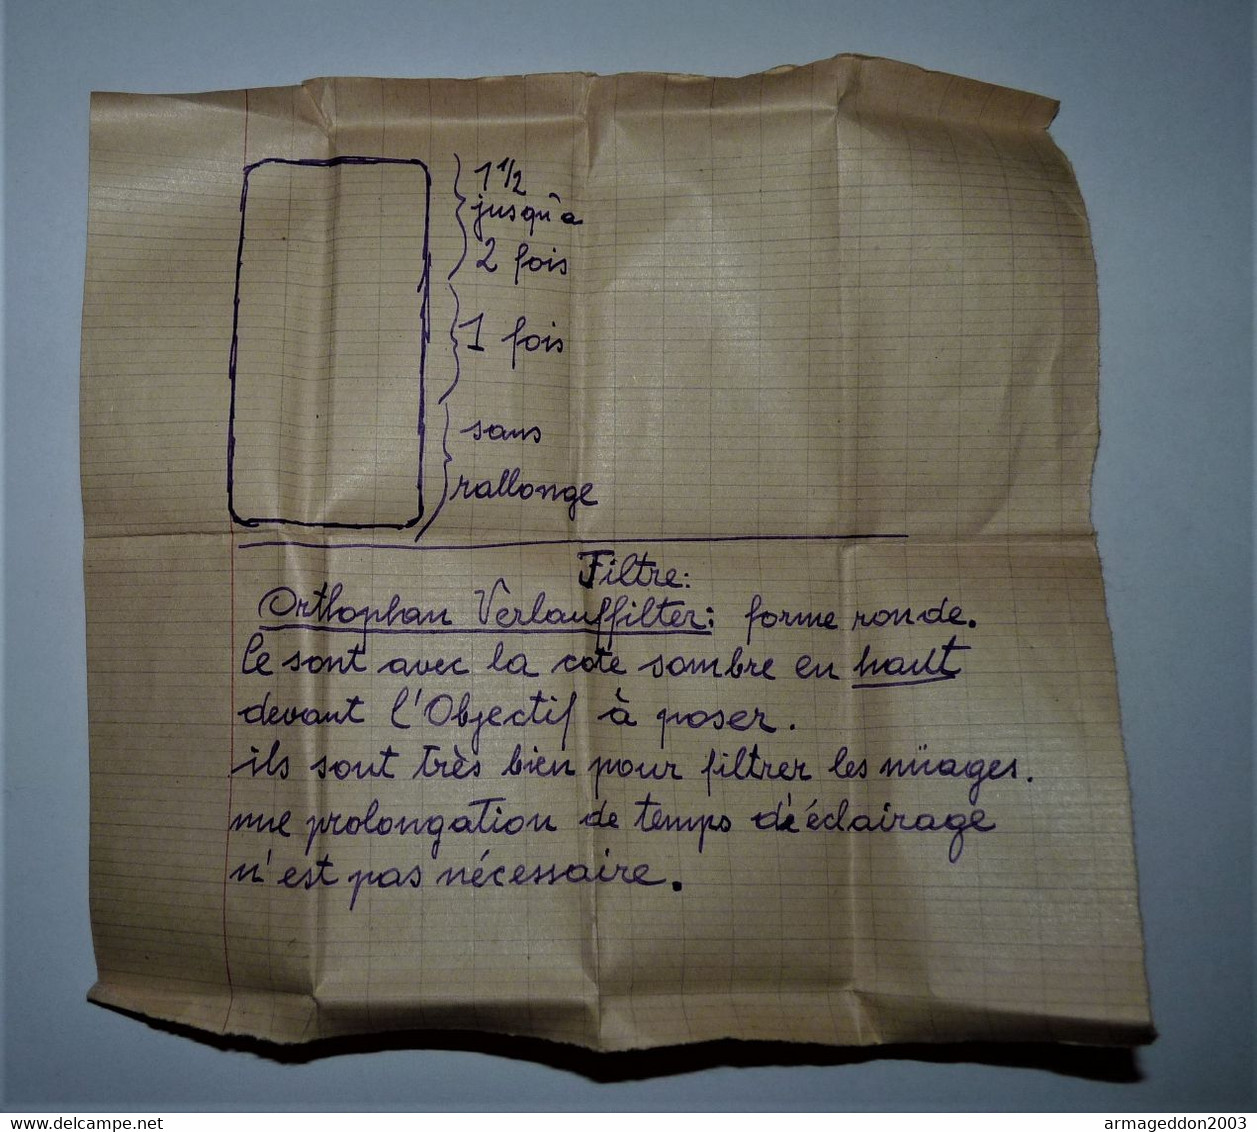 1 1/2
jusqu'a
2 fois
1 fois
sans
rallonge
Filtre:
Orthophan Verlauffilter: forme ronde.
Ce sont avec la cote sombre en haut
devant l'Objectif à poser.
ils sont très bien pour filtrer les nüages.
une prolongation de temps d'éclairage
n'est pas nécessaire.
delcampe.net
armageddon2003